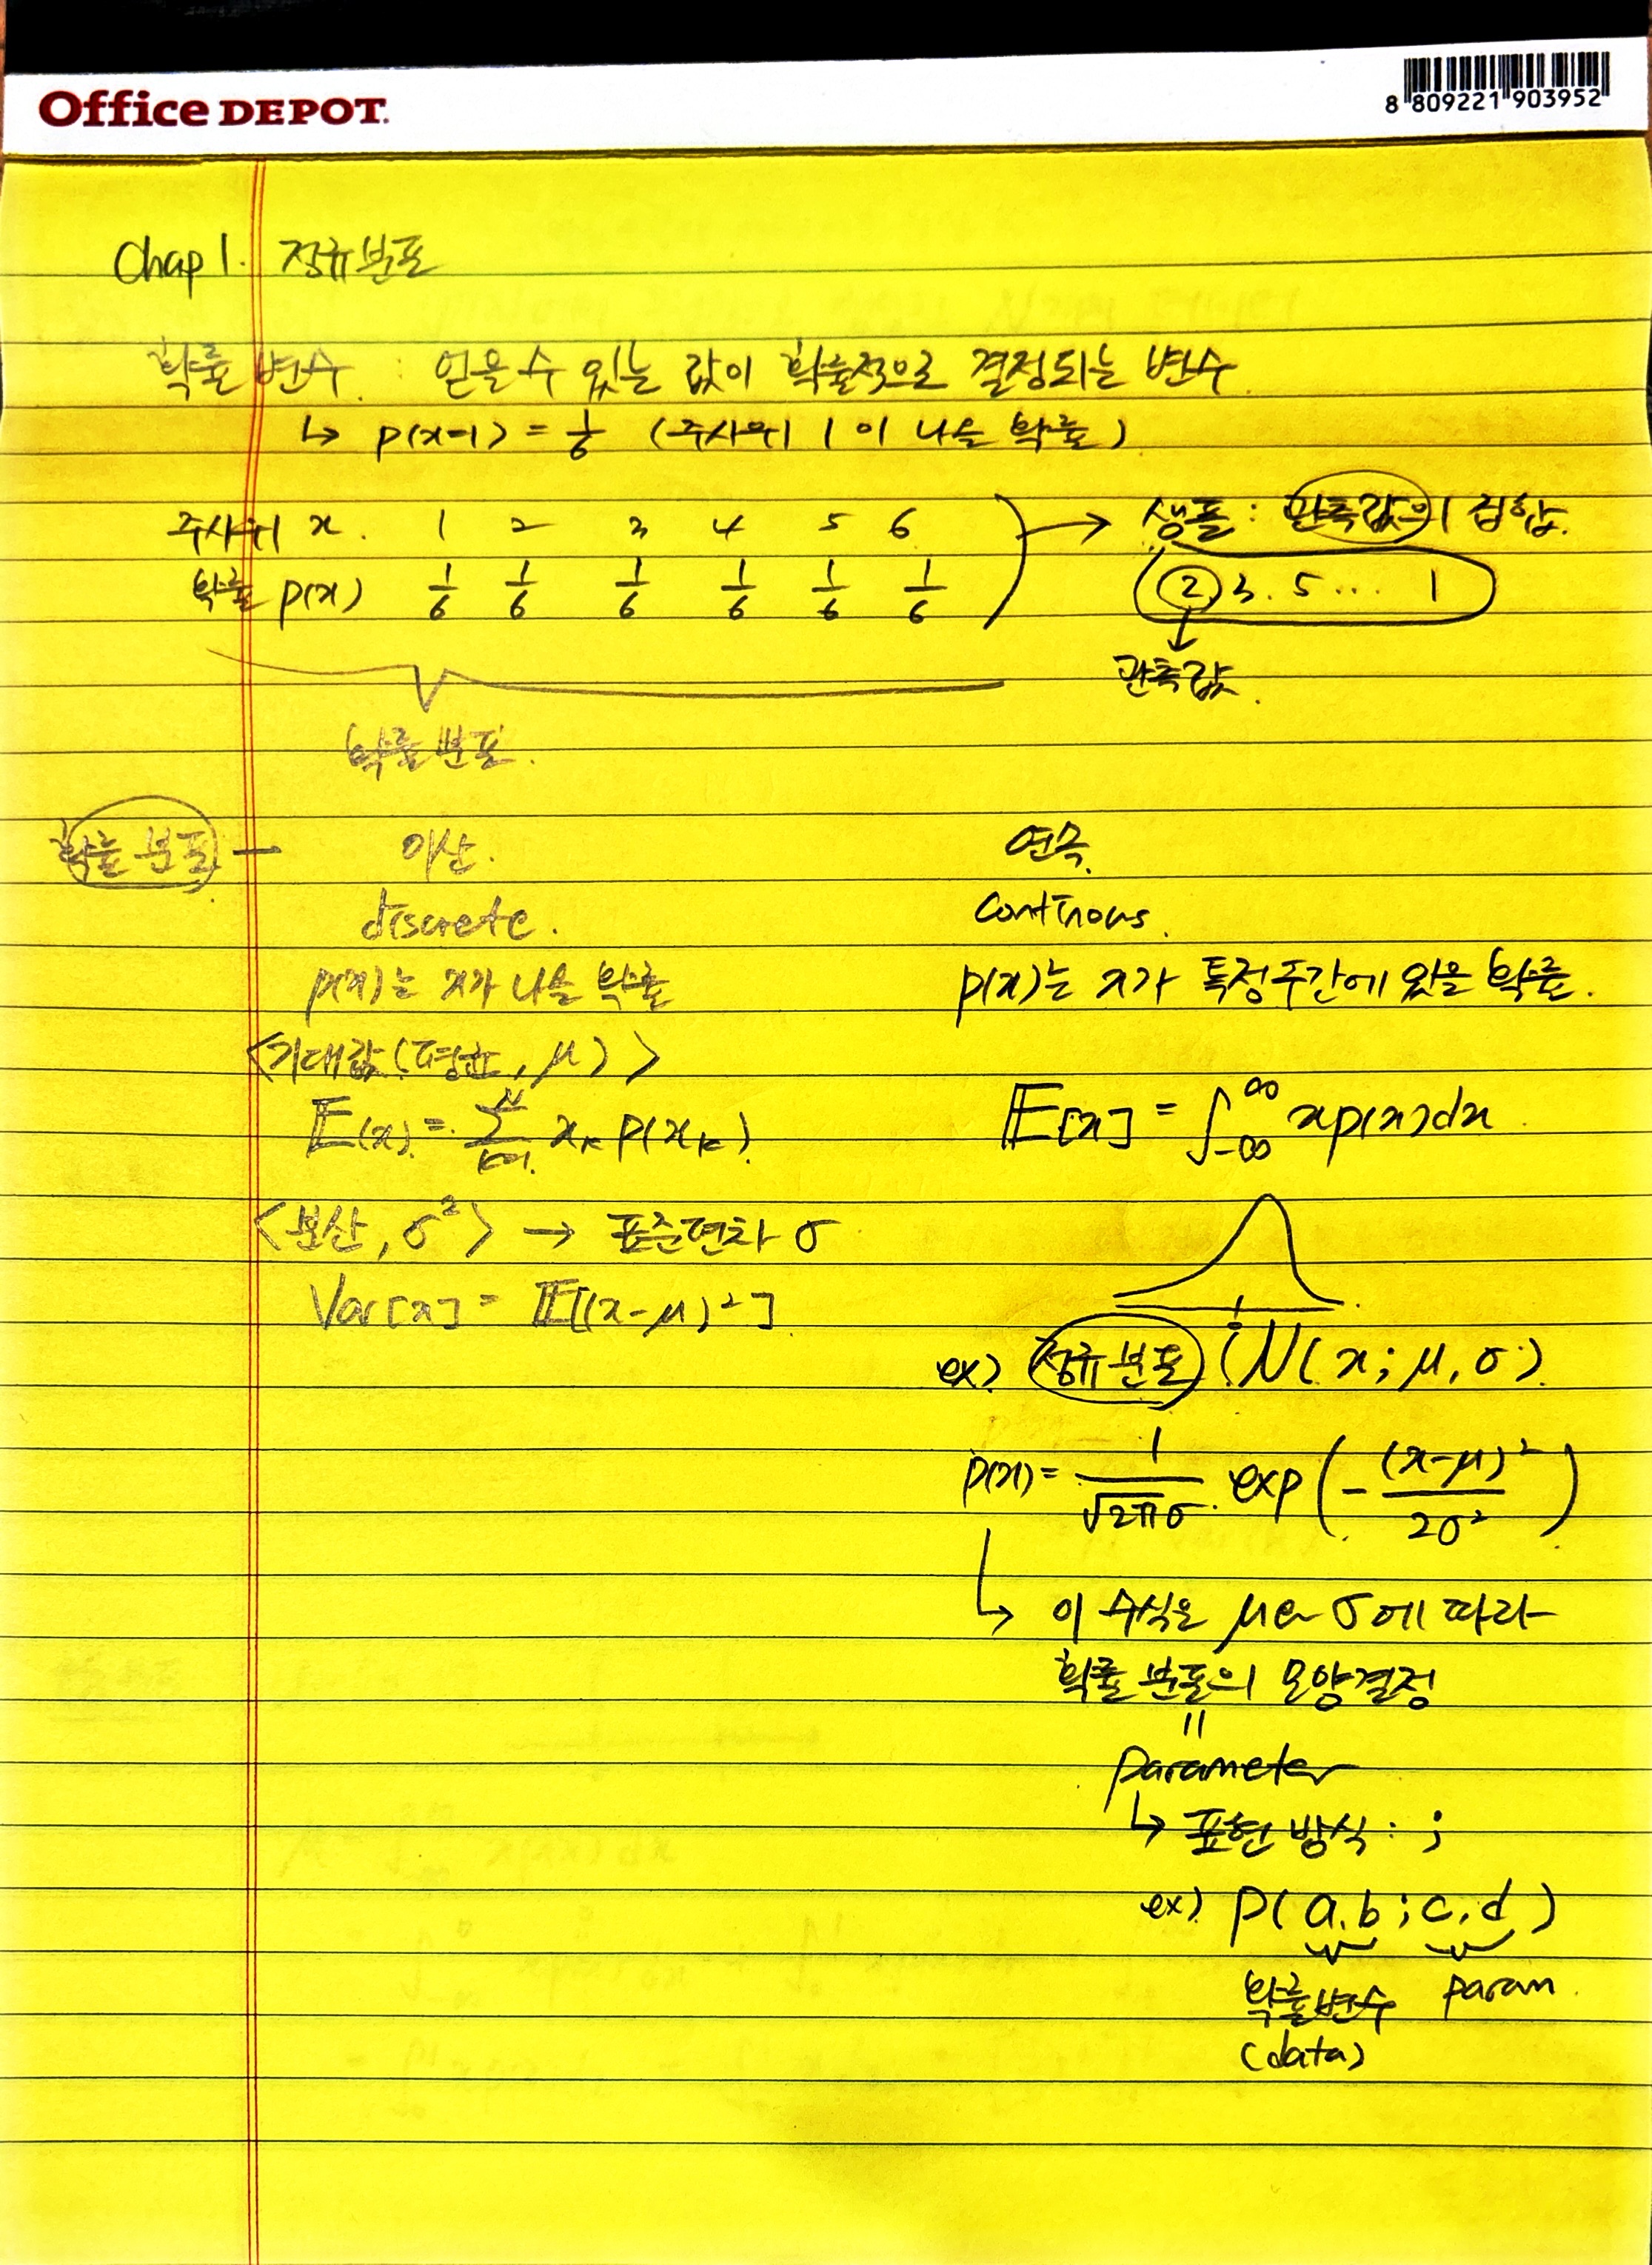 Office DEPOT.
8 809221 903952
Chap 1. 정규분포
확률 변수 : 얻을 수 있는 값이 확률적으로 결정되는 변수
↳ p(x=1) = 1/6 (주사위 1이 나올 확률)
주사위 x. 1 2 3 4 5 6
확률 p(x) 1/6 1/6 1/6 1/6 1/6 1/6
→ 샘플 : 관측값의 집합.
2, 3. 5 ... 1
↓
관측값.
확률 분포.
확률 분포 —
이산.
discrete.
p(x)는 x가 나올 확률
<기대값(평균, μ)>
E(x) = Σ x_k p(x_k)
<분산, σ²> → 표준편차 σ
Var[x] = E[(x-μ)²]
연속.
continous.
p(x)는 x가 특정구간에 있을 확률.
E[x] = ∫_{-∞}^{∞} xp(x)dx
ex) 정규분포 (N(x; μ, σ)
p(x) = 1/(√2π σ) exp(-(x-μ)²/2σ²)
↳ 이 수식은 μ와 σ에 따라
확률 분포의 모양결정
=
parameter
↳ 표현 방식 : ;
ex) p(a, b ; c, d)
확률변수 param.
(data)